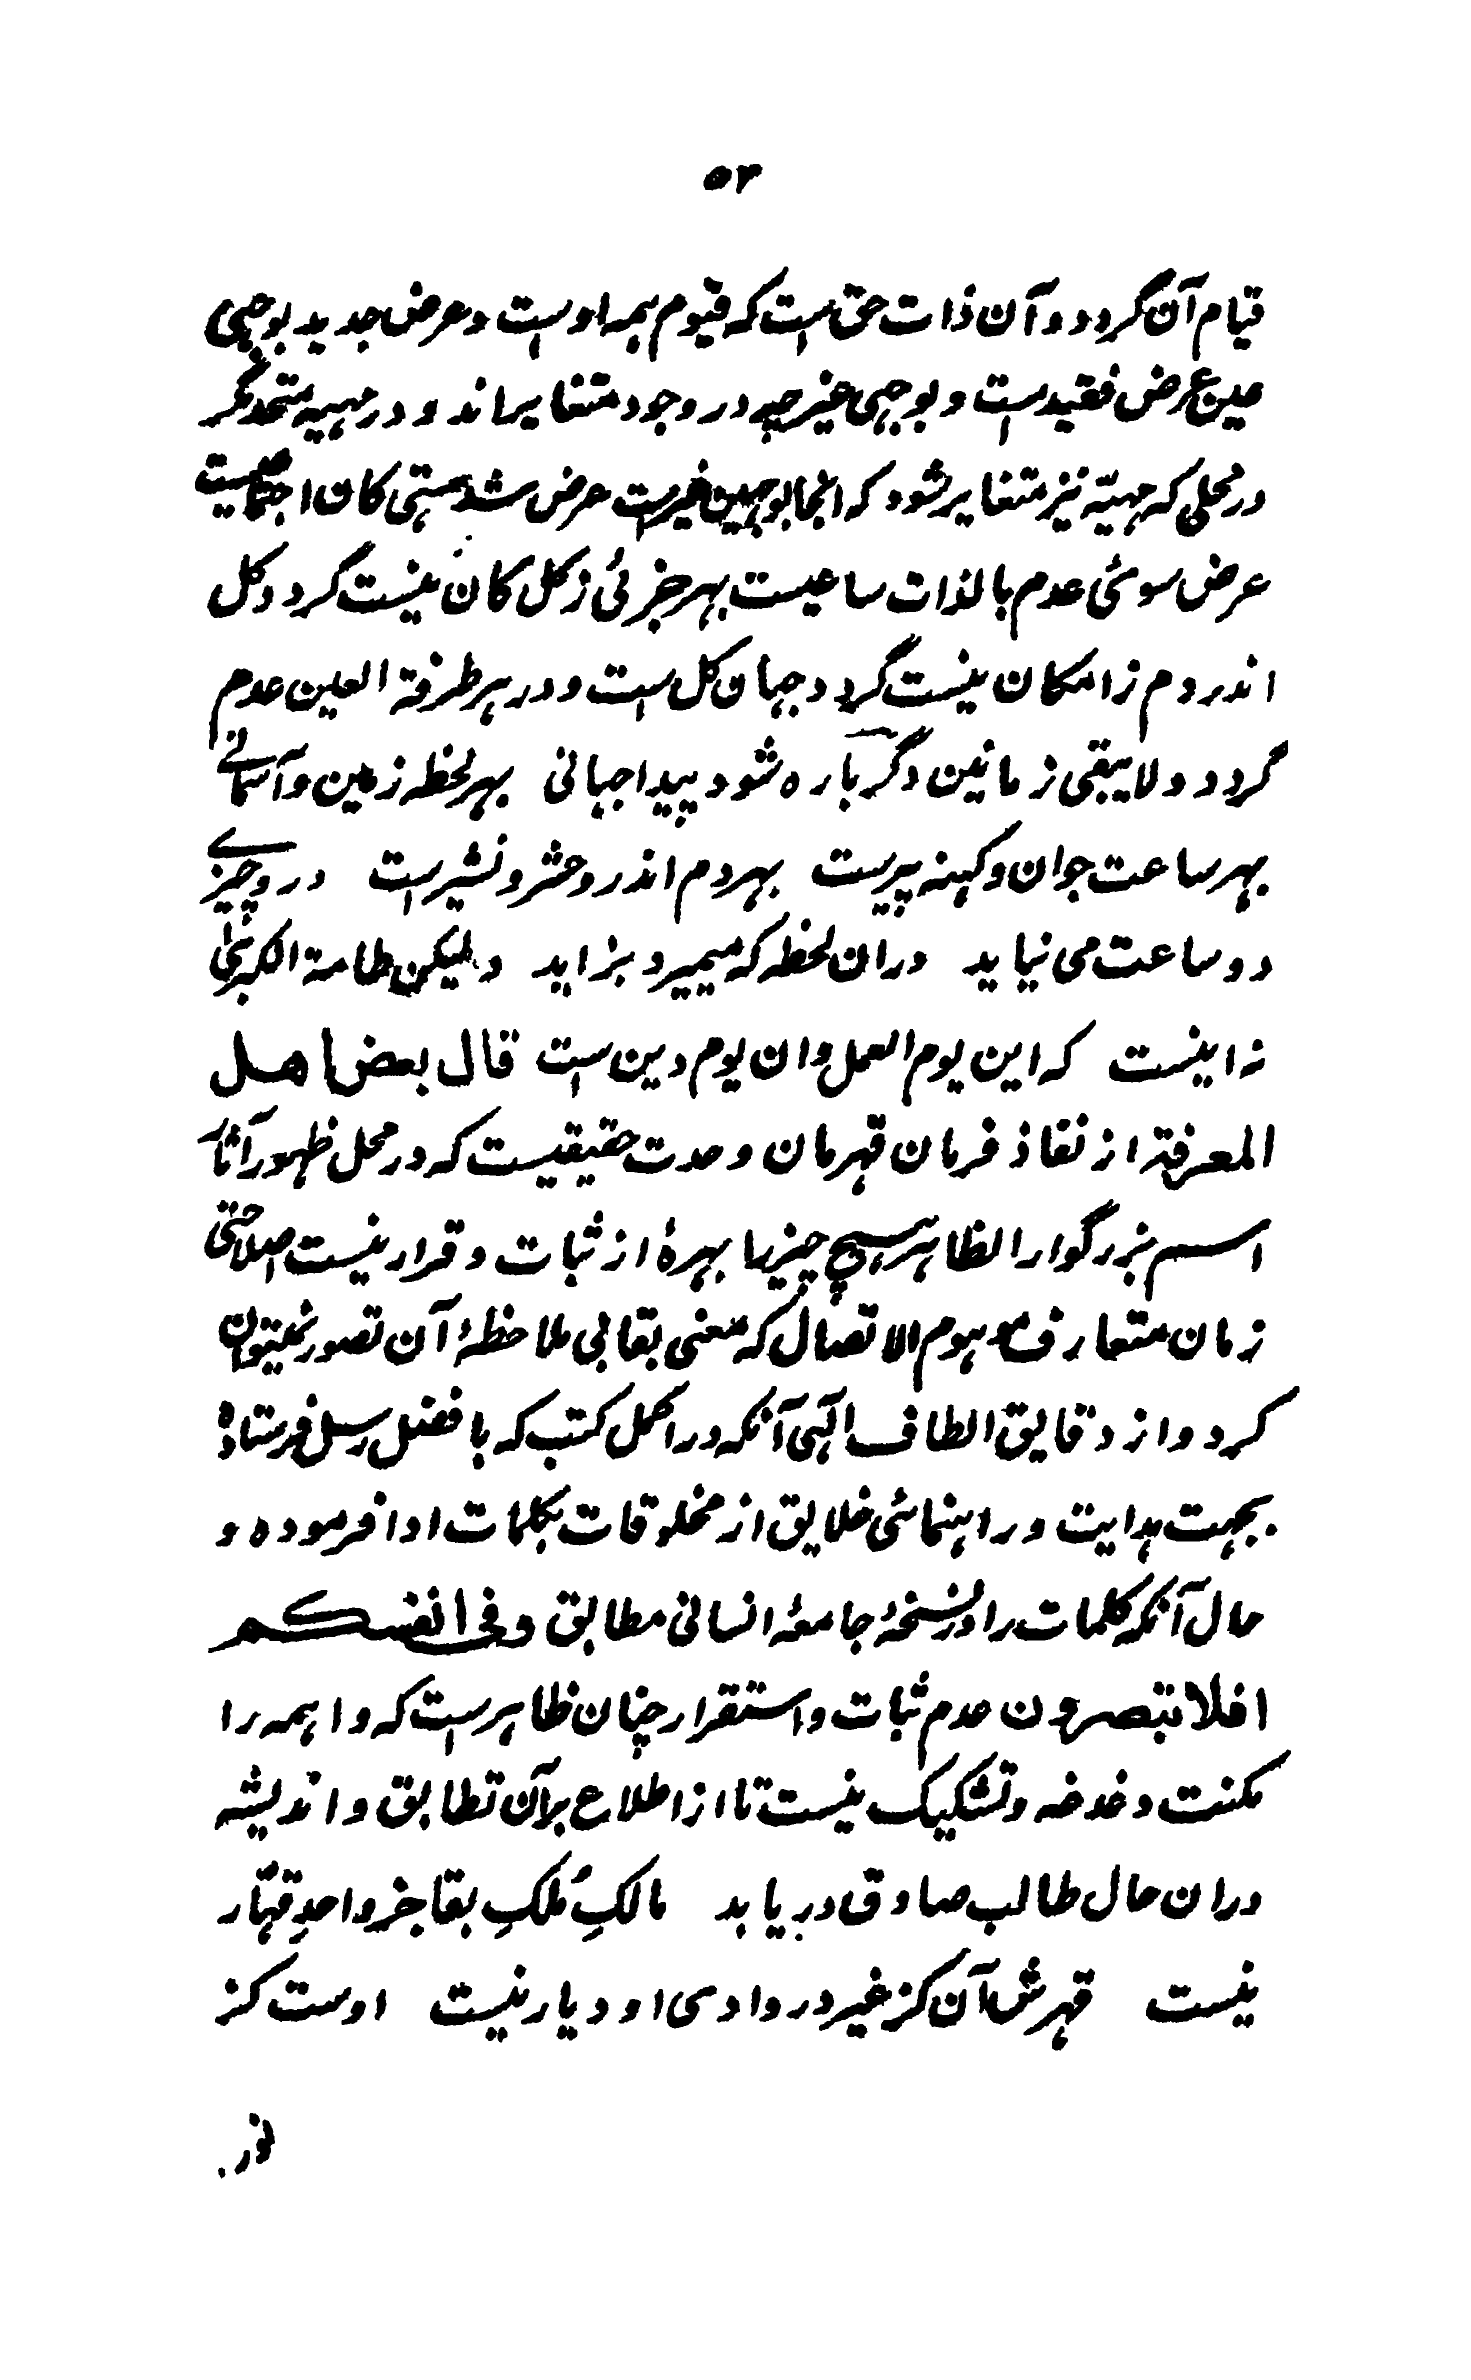 ۵۲
قیام آن گردد و آن ذات حق است که قیوم همه اوست و عرض جدید بوجهی
عین عرض فقید است و بوجهی غیر چه در وجود متغایراند و در مهیه متحد مگر
در محلی که مهیّه نیز متغایر شود که انجا بوجهین غیرست عرض شد هستی کان اجتماعیست
عرض سوئی عدم بالذات ساعیست بهر جزئی ز کل کان نیست گردد کل
اندر دم ز امکان نیست گردد جهان کل ست و در هر طرفة العین عدم
گردد و لا یبقی زمانین دگر باره شود پیدا جهانی بهر لحظه زمین و آسمانے
بهر ساعت جوان و کهنه پیرست بهر دم اندر و حشر و نشیرست درو چیزے
دو ساعت می نیاید دران لحظه که میمیرد بزاید ولیکن طامة الکبریٰ
نه اینست که این یوم العمل وان یوم دین ست قال بعض اهل
المعرفة از نفاذ فرمان قهرمان وحدت حقیقیست که در محل ظهور آثار
اسم بزرگوار الظاهر هیچ چیز را بهرۀ از ثبات و قرار نیست اصلا حتی
زمان متعارف موهوم الاتصال که معنی بقا بی ملاحظۀ آن تصور نمیتوان
کرد و از دقایق الطاف الٓهی آنکه در اکمل کتب که با فضل رسل فرستاده
بجهت هدایت و راهنمائی خلایق از مخلوقات بکلمات ادا فرموده و
حال آنکه کلمات را در نسخۀ جامعۀ انسانی مطابق وفی انفسکم
افلا تبصرون عدم ثبات و استقرار چنان ظاهرست که واهمه را
مکنت دغدغه و تشکیک نیست تا از اطلاع بر آن تطابق و اندیشه
دران حال طالب صادق دریابد مالکِ مُلکِ بقا جز واحدِ قهّار
نیست قهرش آن کز غیر در وادی او دیار نیست اوست کز
نور